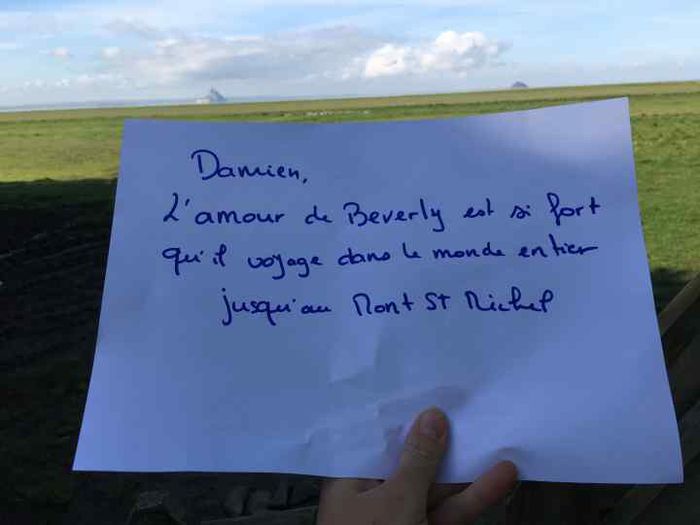 Damien,
L'amour de Beverly est si fort
qu'il voyage dans le monde entier
jusqu'au Mont St Michel